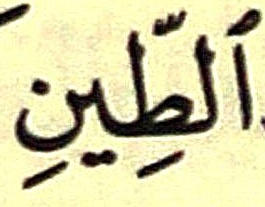 ٱلطِّينِ